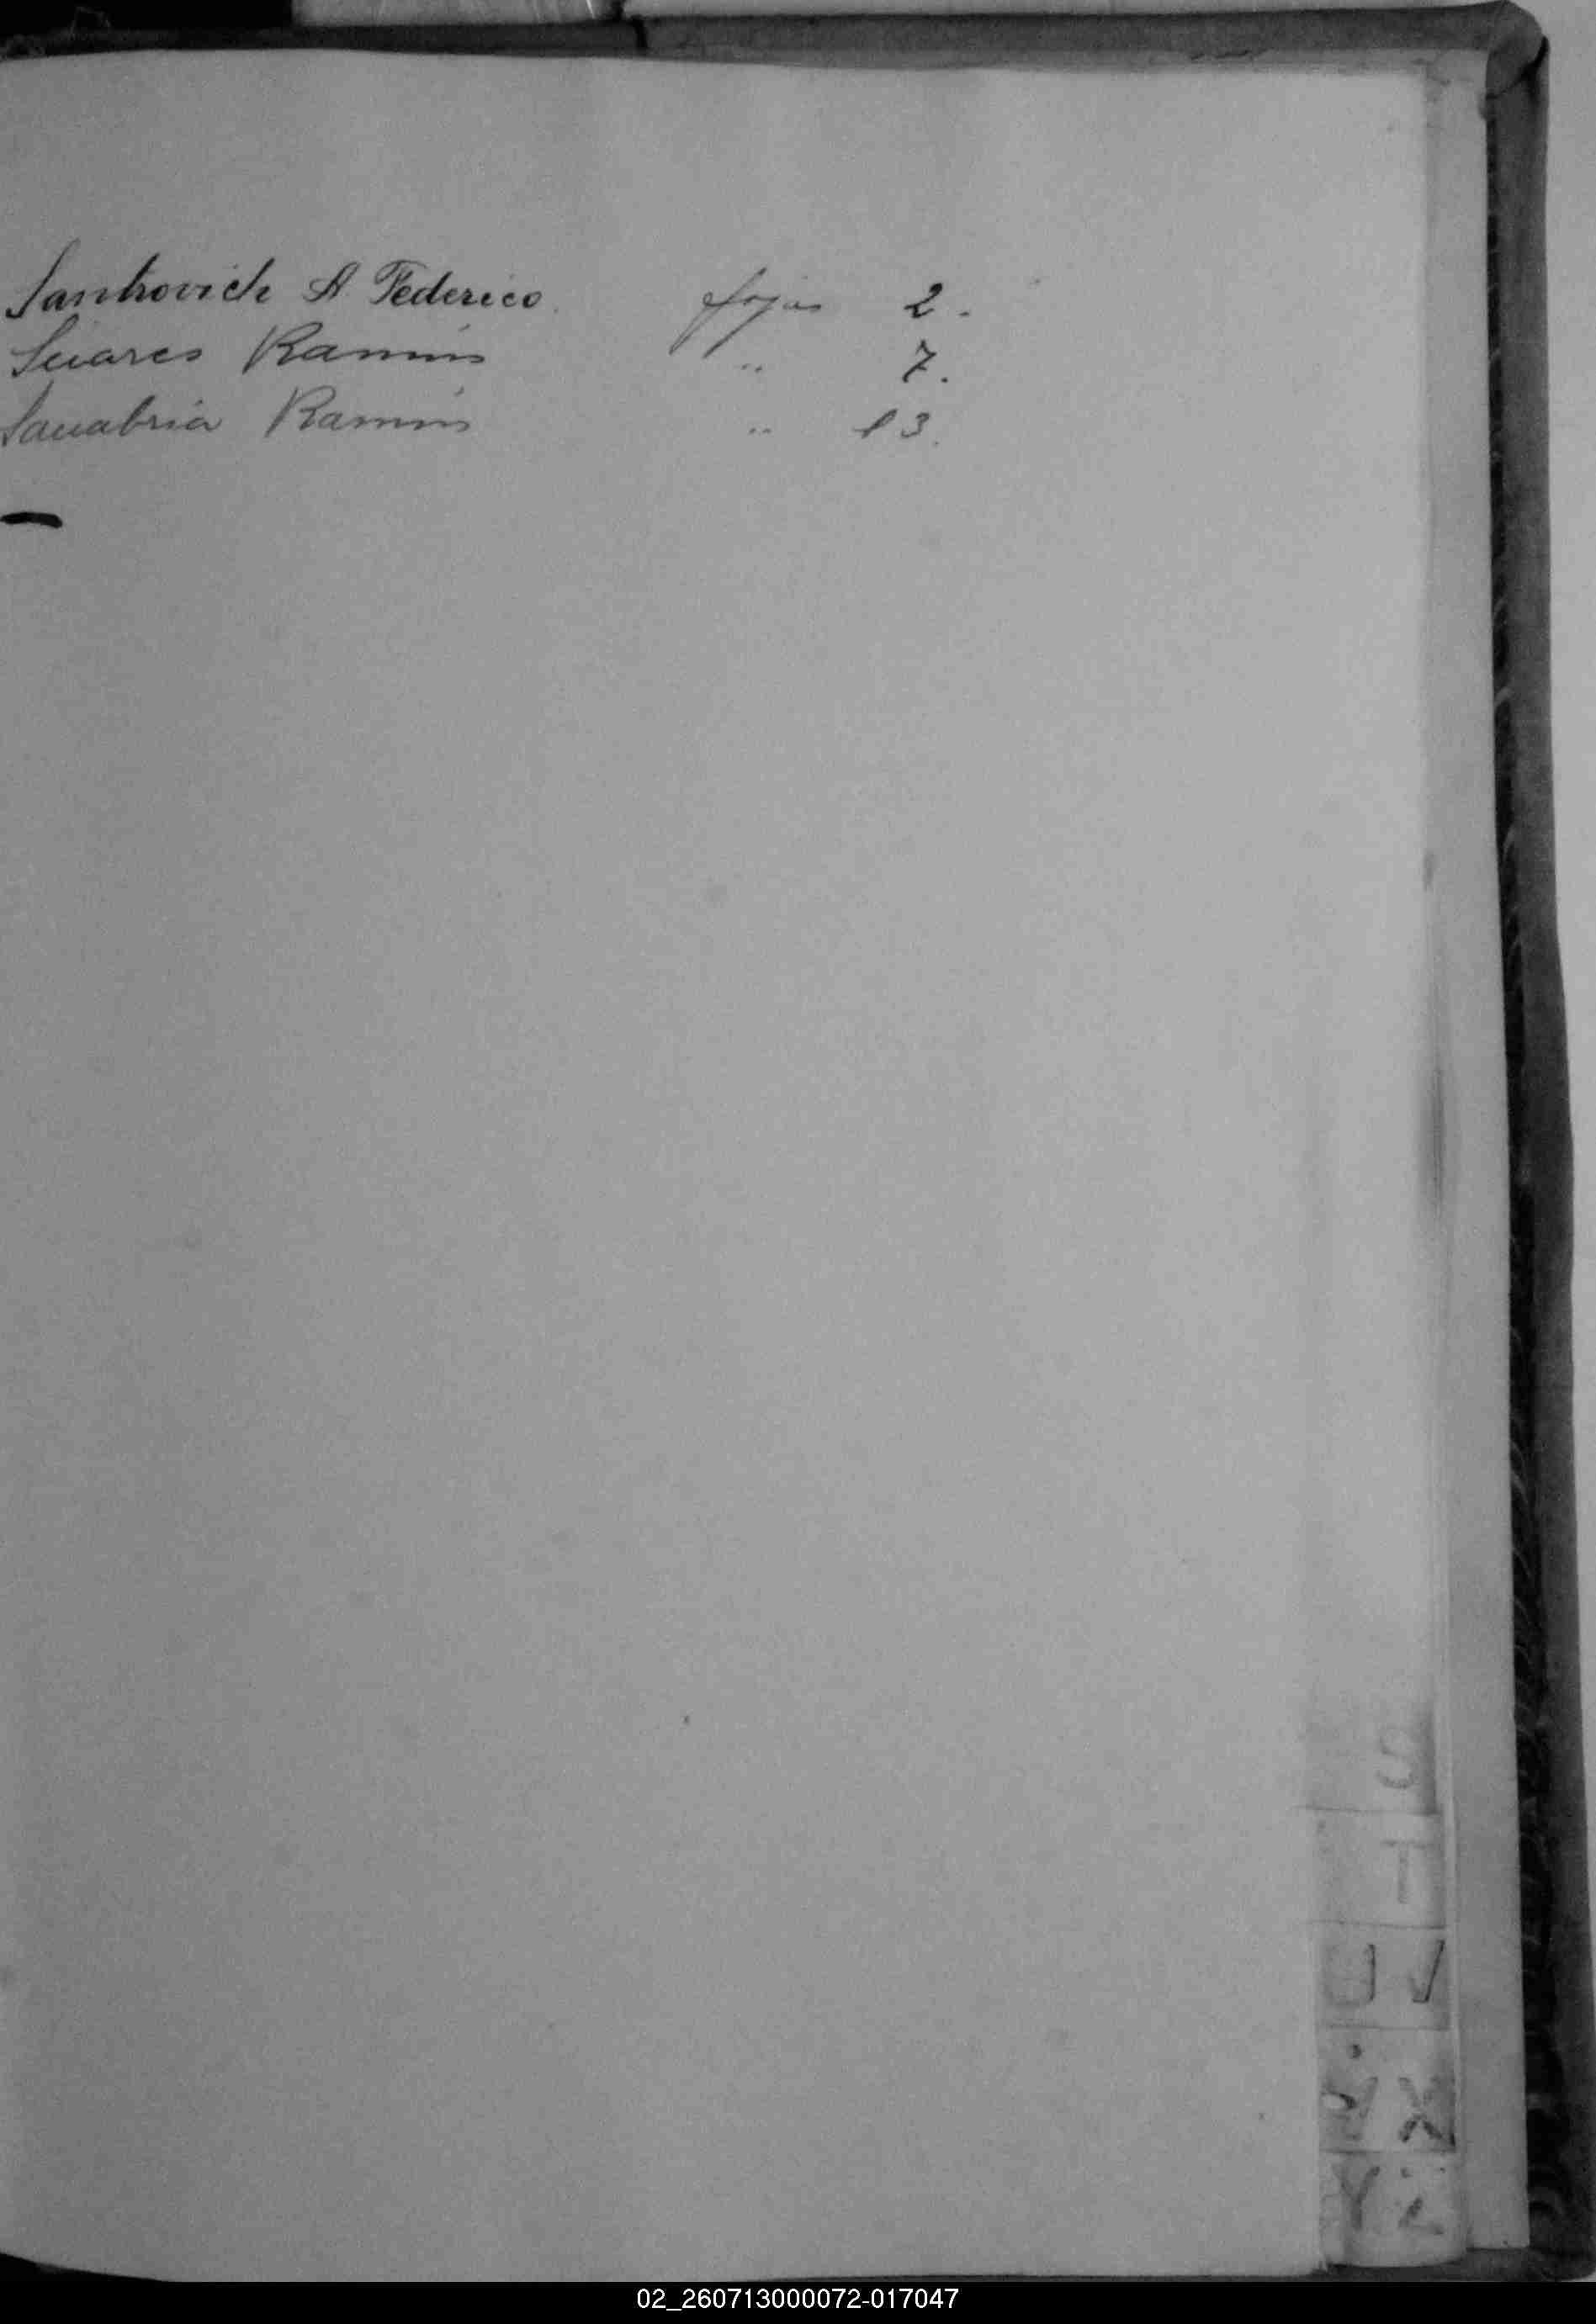 Sankovich A. Federico. fojas 2.
Suares Ramón " 7.
Sanabria Ramón " 13.
S
T
U V
X
Y Z
02_260713000072-017047